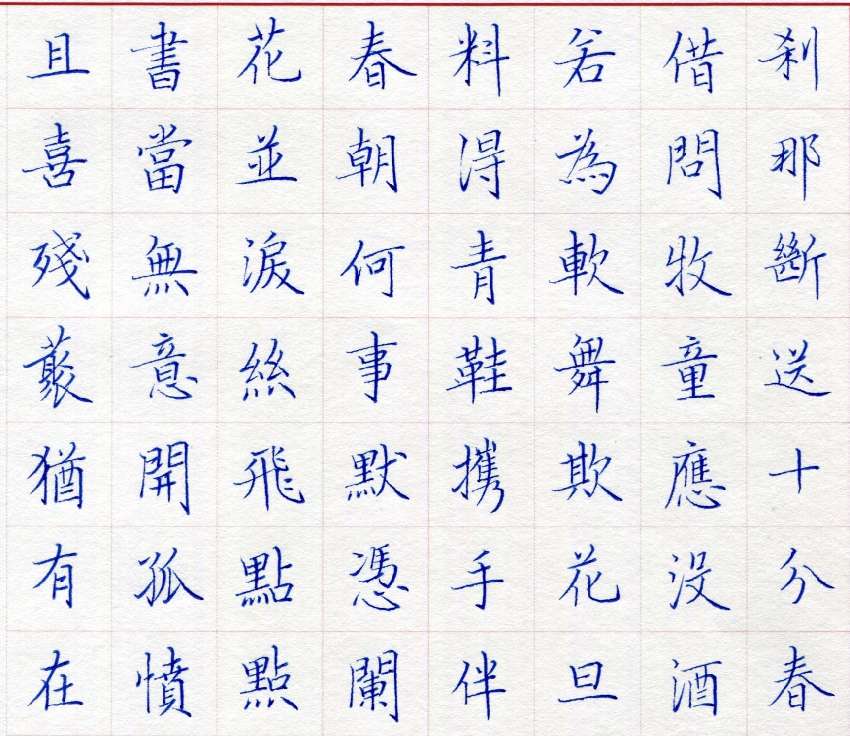 刹那斷送十分春
借問牧童應没酒
若為軟舞欺花旦
料得青鞋攜手伴
春朝何事默憑闌
花並淚絲飛點點
書當無意開孤憤
且喜殘藂猶有在